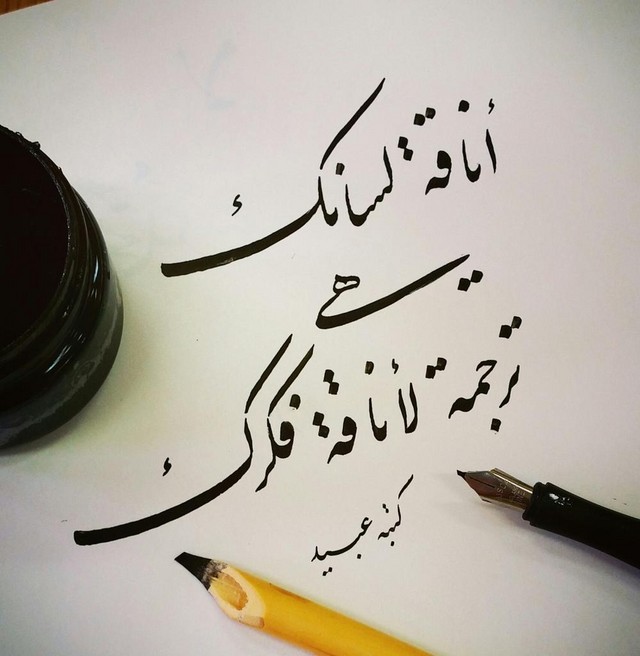 أناقة لسانك
هي
ترجمة لأناقة فكرك
كتبه عبيد